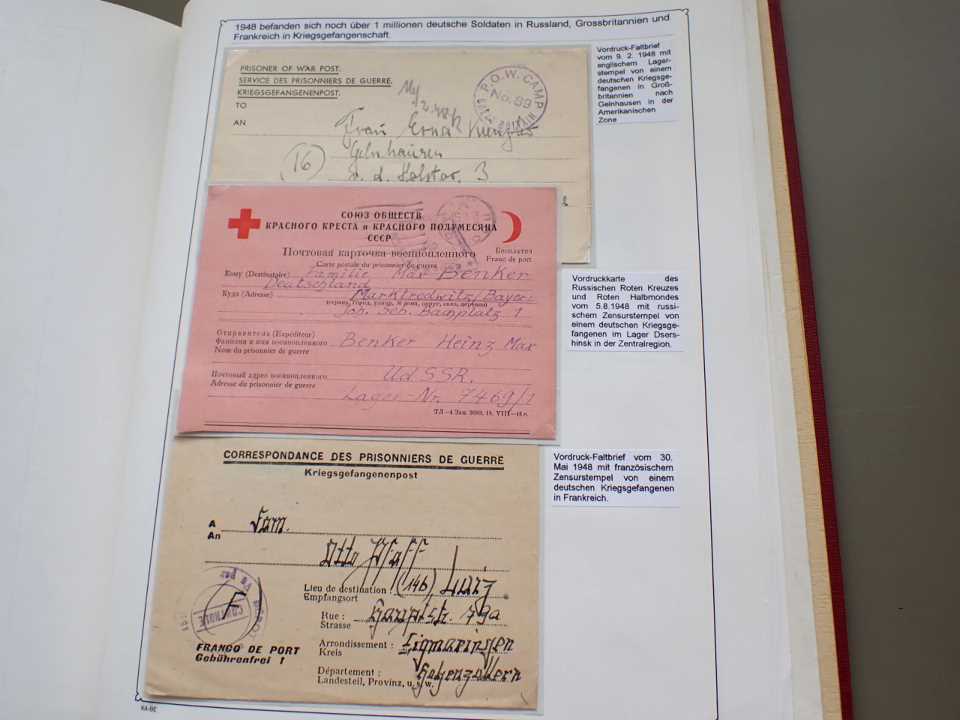 1948 befanden sich noch über 1 millionen deutsche Soldaten in Russland, Grossbritannien und
Frankreich in Kriegsgefangenschaft.
PRISONER OF WAR POST.
SERVICE DES PRISONNIERS DE GUERRE.
KRIEGSGEFANGENENPOST.
TO
AN
P.O.W. CAMP
No. 69
Frau Erna
Gelnhausen
(16)
3
Vordruck-Faltbrief
vom 9. 2. 1948 mit
englischem Lager-
stempel von einem
deutschen Kriegsge-
fangenen in Groß-
britannien nach
Gelnhausen in der
Amerikanischen
Zone
СОЮЗ ОБЩЕСТВ
КРАСНОГО КРЕСТА и КРАСНОГО ПОЛУМЕСЯЦА
СССР
Почтовая карточка военнопленного
Carte postale du prisonnier de guerre
Бесплатно
Franc de port
Кому (Destinataire) Familie Max Benker
Deutschland
Куда (Adresse) Marktredwitz/Bayern
Joh. Seb. Bachplatz 1
Отправитель (Expéditeur)
Фамилия и имя военнопленного Benker Heinz Max
Nom du prisonnier de guerre
Почтовый адрес военнопленного Ud.SSR.
Adresse du prisonnier de guerre
Lager-Nr. 7469/1
Vordruckkarte des
Russischen Roten Kreuzes
und Roten Halbmondes
vom 5.8.1948 mit russi-
schem Zensurstempel von
einem deutschen Kriegsge-
fangenen im Lager Dsers-
hinsk in der Zentralregion.
CORRESPONDANCE DES PRISONNIERS DE GUERRE
Kriegsgefangenenpost
A Fam.
An
Otto Pfaff
Lieu de destination : (14b) Laiz
Empfangsort
Rue : Hauptstr. 79a
Strasse
Arrondissement : Sigmaringen
Kreis
Département : Hohenzollern
Landesteil, Provinz, u. s. w.
F
CONTROLE
DEPOT
FRANCO DE PORT
Gebührenfrei !
Vordruck-Faltbrief vom 30.
Mai 1948 mit französischem
Zensurstempel von einem
deutschen Kriegsgefangenen
in Frankreich.